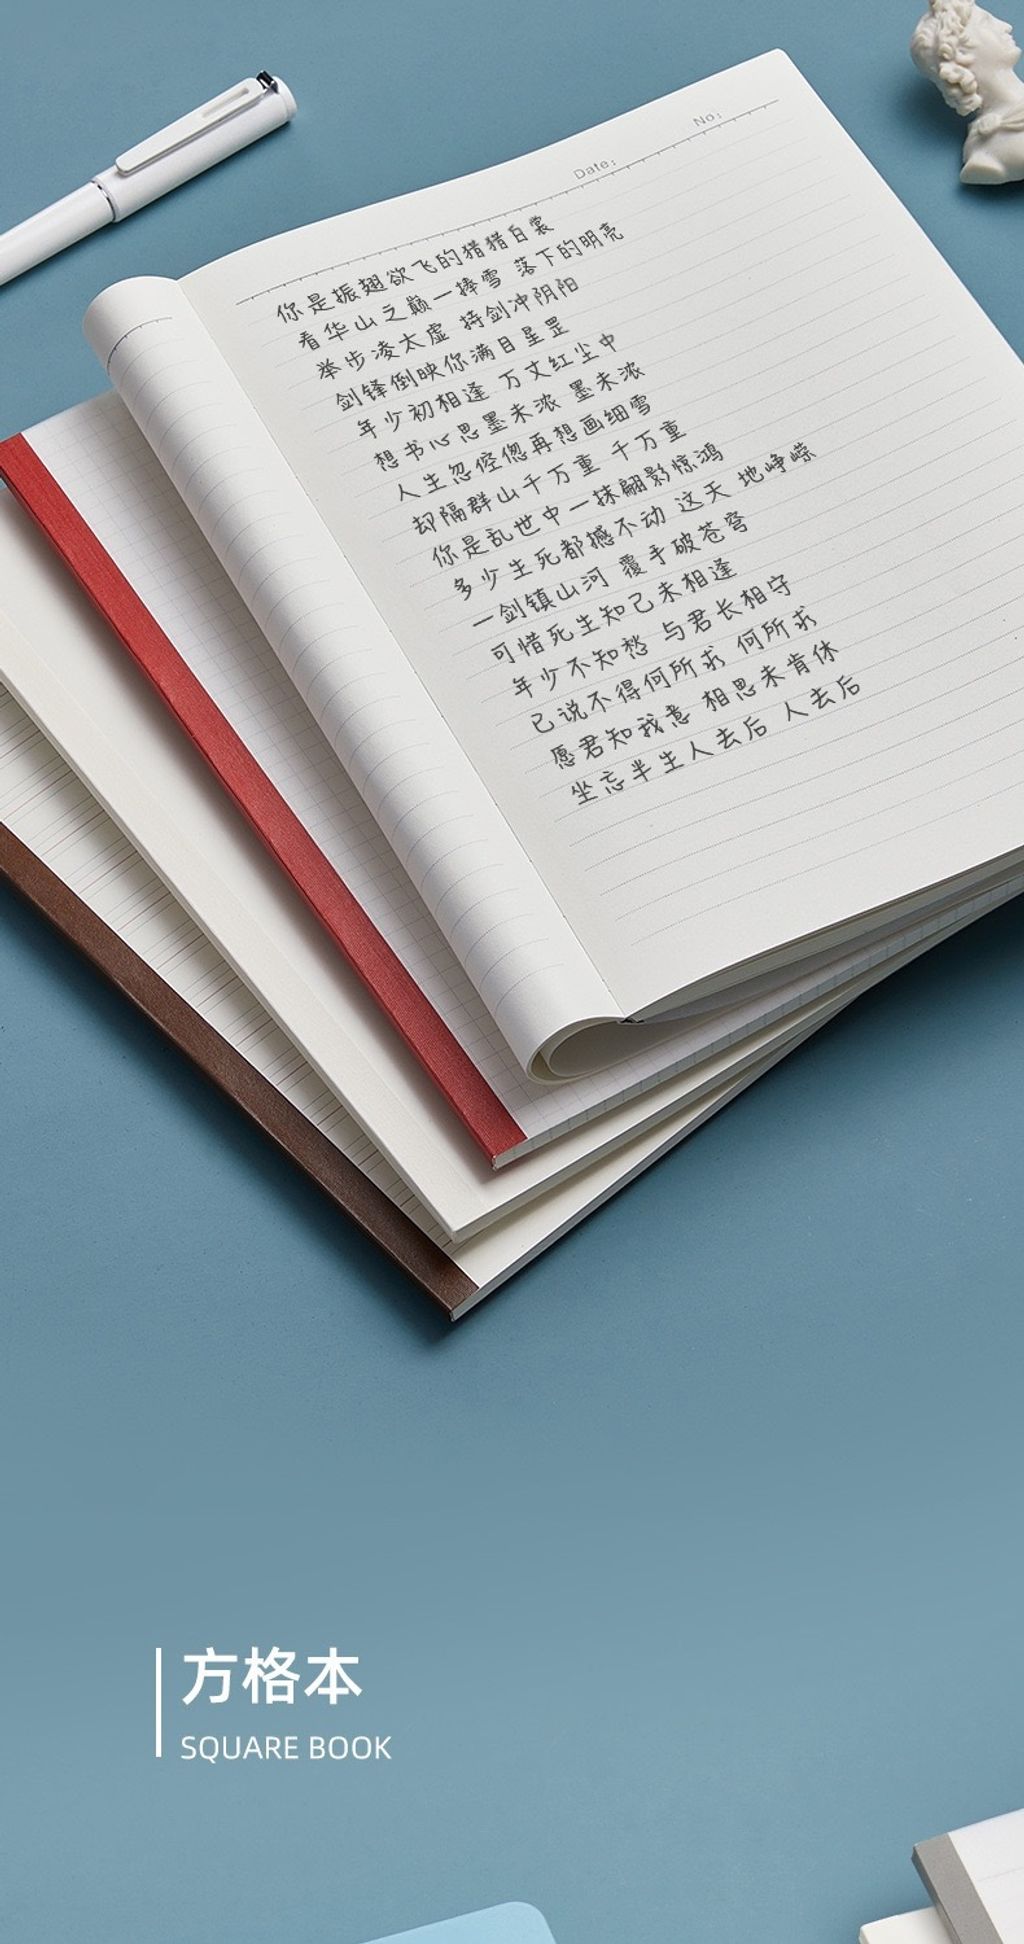 No:
Date:
你是振翅欲飞的猎猎白裳
看华山之巅一捧雪 落下的明亮
举步凌太虚 持剑冲阴阳
剑锋倒映你满目星罡
年少初相逢 万丈红尘中
想书心思墨未浓 墨未浓
人生忽倥偬再想画细雪
却隔群山千万重 千万重
你是乱世中一抹翩影惊鸿
多少生死都撼不动 这天 地峥嵘
一剑镇山河 覆手破苍穹
可惜死生知己未相逢
年少不知愁 与君长相守
已说不得何所求 何所求
愿君知我意 相思未肯休
坐忘半生人去后 人去后
方格本
SQUARE BOOK